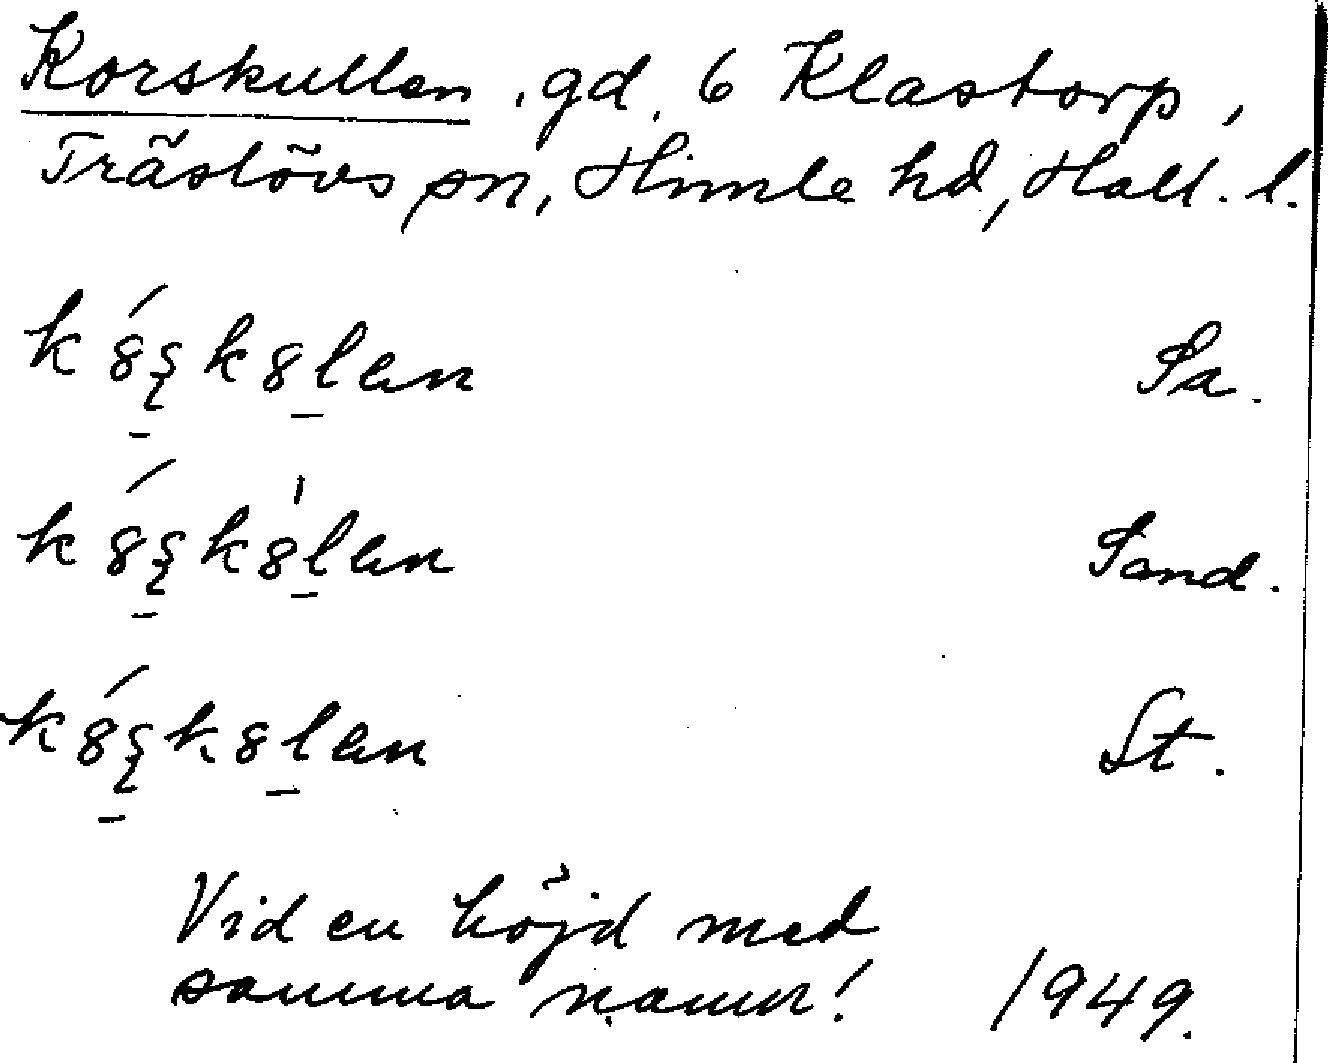 Korskullen, gd, 6 Klastorp,
Träslövs sn, Himle hd, Hall. l.
Sa.
Sand.
St.
Vid en höjd med
samma namn! 1949.